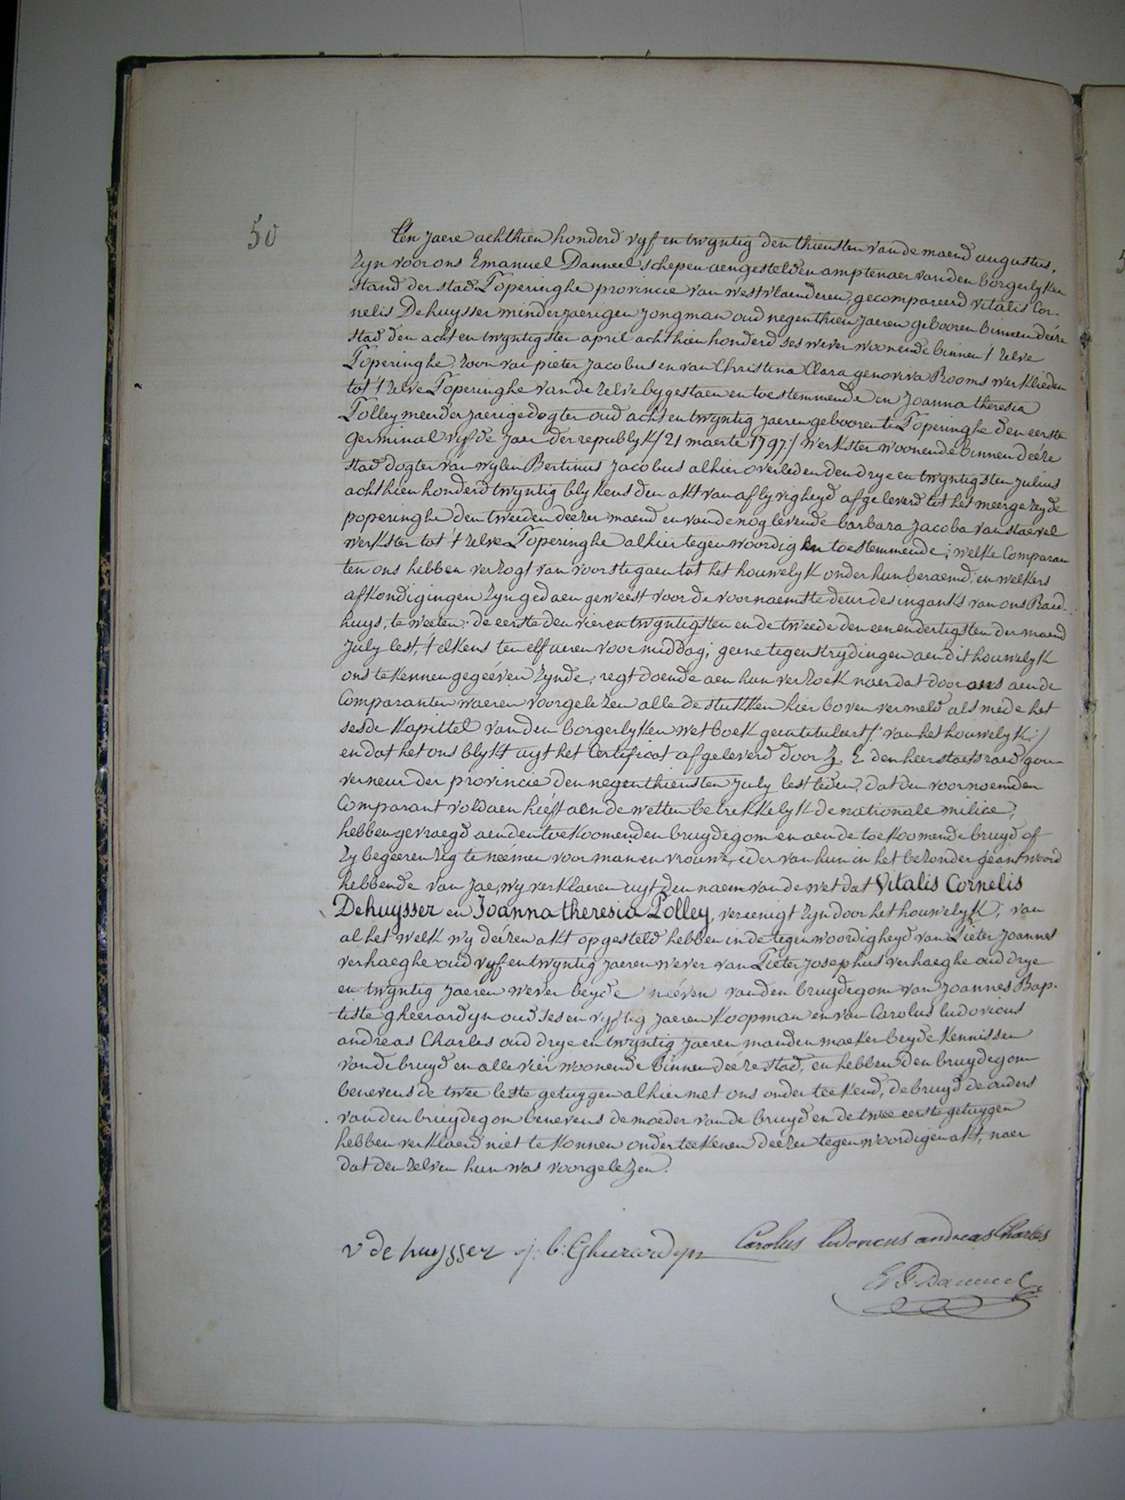 50
Ten jaere achthien honderd vyf en twyntig den thiensten van de maend augustus,
zyn voor ons Emanuel Danneel schepen aengestelden amptenaer van den borgerlyken
stand der stad Poperinghe provincie van westvlaenderen, gecompareerd vitalis Cor-
nelis Dehuysser minderjaerigen jongman oud negenthien jaeren gebooren binnen deéze
stad den acht en twyntigsten april achthien honderd ses wever woonende binnen 't zelve
Poperinghe, zoon van pieter Jacobus en van Christina Clara genoviva Rooms werklieden
tot 't zelve Poperinghe van de zelve bygestaen en toestemmende en Joanna theresia
Polley meerderjaerige dogter oud acht en twyntig jaeren gebooren te Poperinghe den eerste
germinal vyfde jaer der republyk /21 maerte 1797/ werkster woonende binnen deéze
stad dogter van wylen Bertinus Jacobus alhier overleden den drye en twyntigsten julius
achthien honderd twyntig blykens den akt van aflyvigheyd afgeleverd tot het meergezeyde
poperinghe den tweeden deezer maend en van de nog levende barbara Jacoba van staevel
werkster tot 't zelve Poperinghe alhier tegenwoordig en toestemmende; welke Comparan
ten ons hebben verzogt van voorstegaen tot het houwelyk onder hun beraemd, en welkers
afkondigingen zyn gedaen geweést voor de voornaemste deur des inganks van ons Raed-
huys, te weeten: de eerste den vier en twyntigsten en de tweede den een en dertigsten der maend
July lest, t'elkens ten elf uren voormiddag; geene tegenstrydingen aen dit houwelyk
ons te kennen gegeéven zynde; regt doende aen hun verzoek naer dat door ons aen de
Comparanten waeren voorgelezen alle de stukken hier boven vermeld als mede het
sesde kapittel van den borgerlyken wetboek geintituleert /: van het houwelyk:/
en dat het ons blykt uyt het Certificaet afgeleverd door Z. E. den heer staetsraed gou-
verneur der provincie den negenthiensten July lestleden, dat den voornoemden
Comparant voldaen heéft aen de wetten betrekkelyk de nationale milicie,
hebben gevraegd aen den toekoomenden bruydegom en aen de toekoomende bruyd of
zy begeeren zig te neémen voor man en vrouwe, ider van hun in het bezonder geantwoord
hebbende van Jae; wy verklaeren uyt den naem van de wet dat Vitalis Cornelis
Dehuysser en Joanna theresia Polley, vereenigt zyn door het houwelyk; van
al het welk wy deézen akt opgesteld hebben in de tegenwoordigheyd van Pieter Joannes
verhaeghe oud vyf en twyntig jaeren wever van Pieter Josephus verhaeghe oud drye
en twyntig jaeren wever beyde neéven van den bruydegom van Joannes Bap-
tiste gheerardyn oud ses en vyftig jaeren koopman en van Carolus ludovicus
andreas Charles oud drye en twyntig jaeren mandenmaeker beyde kennissen
van de bruyd en alle vier woonende binnen deéze stad, en hebben den bruydegom
benevens de twee leste getuygen alhier met ons onderteekend, de bruyd de ouders
van den bruydegom benevens de moeder van de bruyd en de twee eerste getuygen
hebben verklaerd niet te konnen onderteekenen deezen tegenwoordigen akt, naer
dat den zelven hun was voorgelezen.
v de huysser j: b: Gheerardyn Carolus ludovicus andreas Charles
E F Danneel